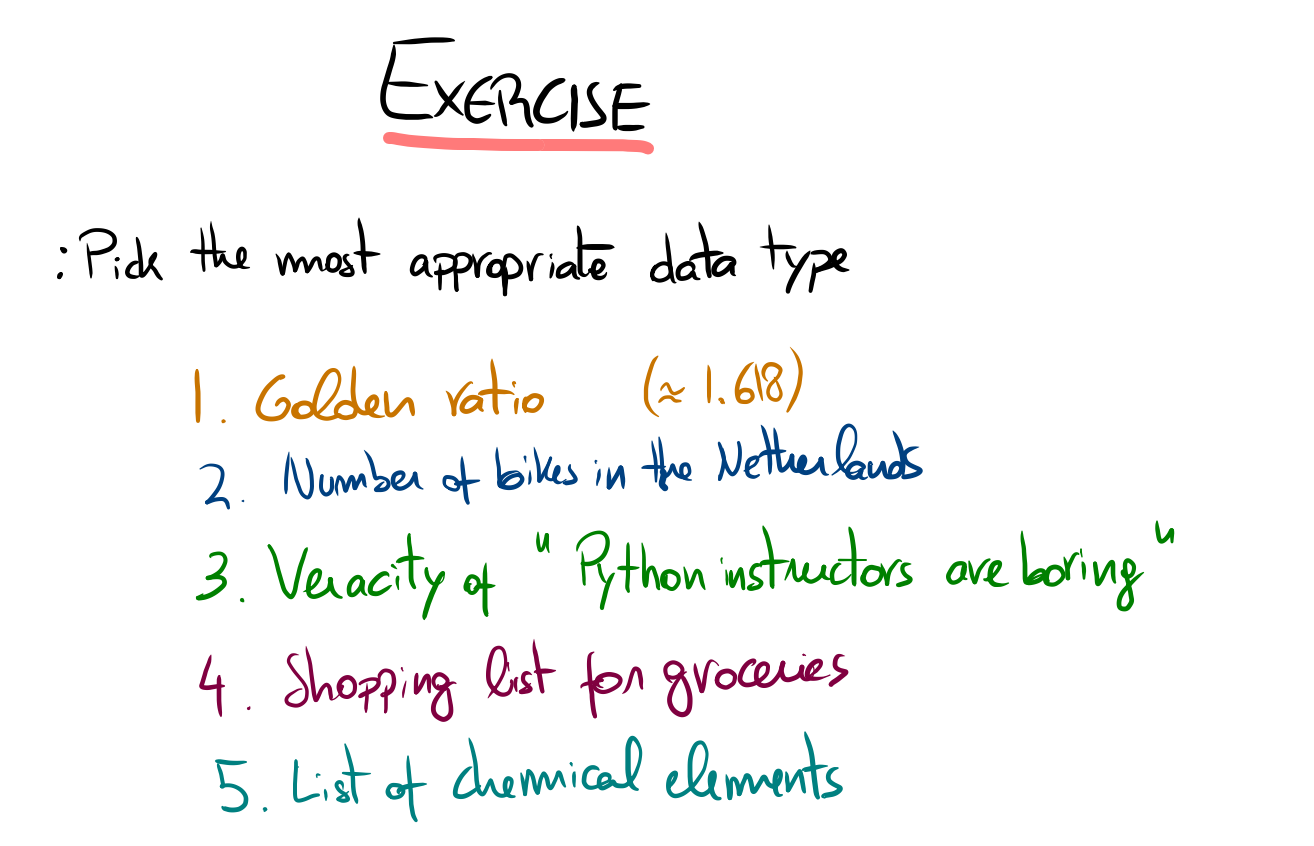 EXERCISE
: Pick the most appropriate data type
1. Golden ratio (≈ 1.618)
2. Number of bikes in the Netherlands
3. Veracity of "Python instructors are boring"
4. Shopping list for groceries
5. List of chemical elements